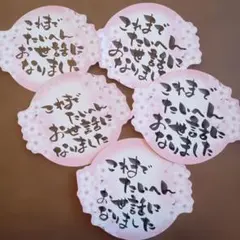 これまで
たいへん
お世話に
なりました
これまで
たいへん
お世話に
なりました
これまで
たいへん
お世話に
なりました
これまで
たいへん
お世話に
なりました
これまで
たいへん
お世話に
なりました